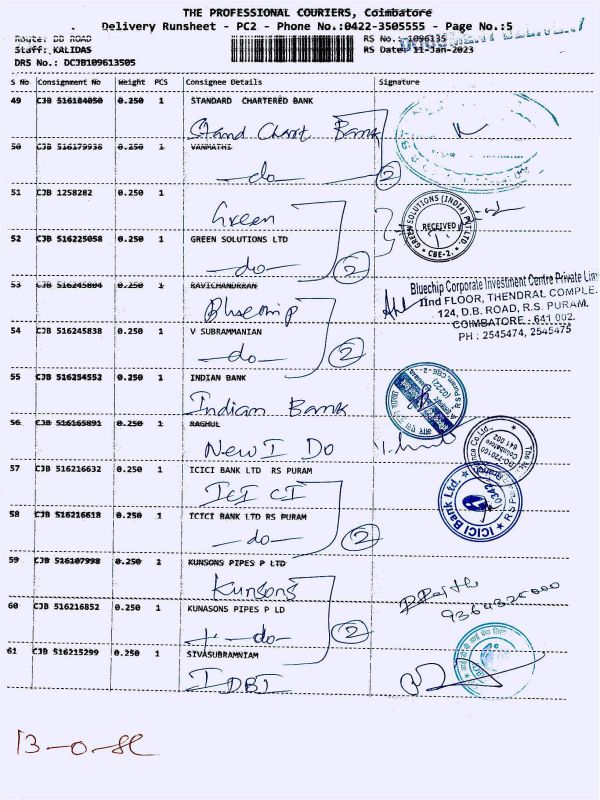 THE PROFESSIONAL COURIERS, Coimbatore
Delivery Runsheet - PC2 - Phone No.:0422-3505555 - Page No.:5
Route: DB ROAD RS No.: 1096135
Staff: KALIDAS RS Date: 11-Jan-2023
DRS No.: DCJB109613505
S No Consignment No Weight PCS Consignee Details Signature
49 CJB 516184050 0.250 1 STANDARD CHARTERED BANK
Stand Chart Bank
50 CJB 516179938 0.250 1 VANMATHI
-do- 2
51 CJB 1258282 0.250 1
Green
GREEN SOLUTIONS (INDIA) PVT LTD.
RECEIVED
CBE-2.
52 CJB 516225058 0.250 1 GREEN SOLUTIONS LTD
-do- 2
53 CJB 516245804 0.250 1 RAVICHANDRAN
Bluechip
Bluechip Corporate Investment Centre Private Lim
IInd FLOOR, THENDRAL COMPLE
124, D.B. ROAD, R.S. PURAM,
COIMBATORE - 641 002.
PH : 2545474, 2545475
54 CJB 516245838 0.250 1 V SUBRAMMANIAN
-do- 2
55 CJB 516254552 0.250 1 INDIAN BANK
Indian Bank
56 CJB 516165891 0.250 1 RAGHUL
New I Do
57 CJB 516216632 0.250 1 ICICI BANK LTD RS PURAM
ICICI
ICICI Bank Ltd.
58 CJB 516216618 0.250 1 ICICI BANK LTD RS PURAM
-do- 2
59 CJB 516107998 0.250 1 KUNSONS PIPES P LTD
Kunsons
60 CJB 516216852 0.250 1 KUNASONS PIPES P LD
-do- 2
61 CJB 516215299 0.250 1 SIVASUBRAMNIAM
IDBI